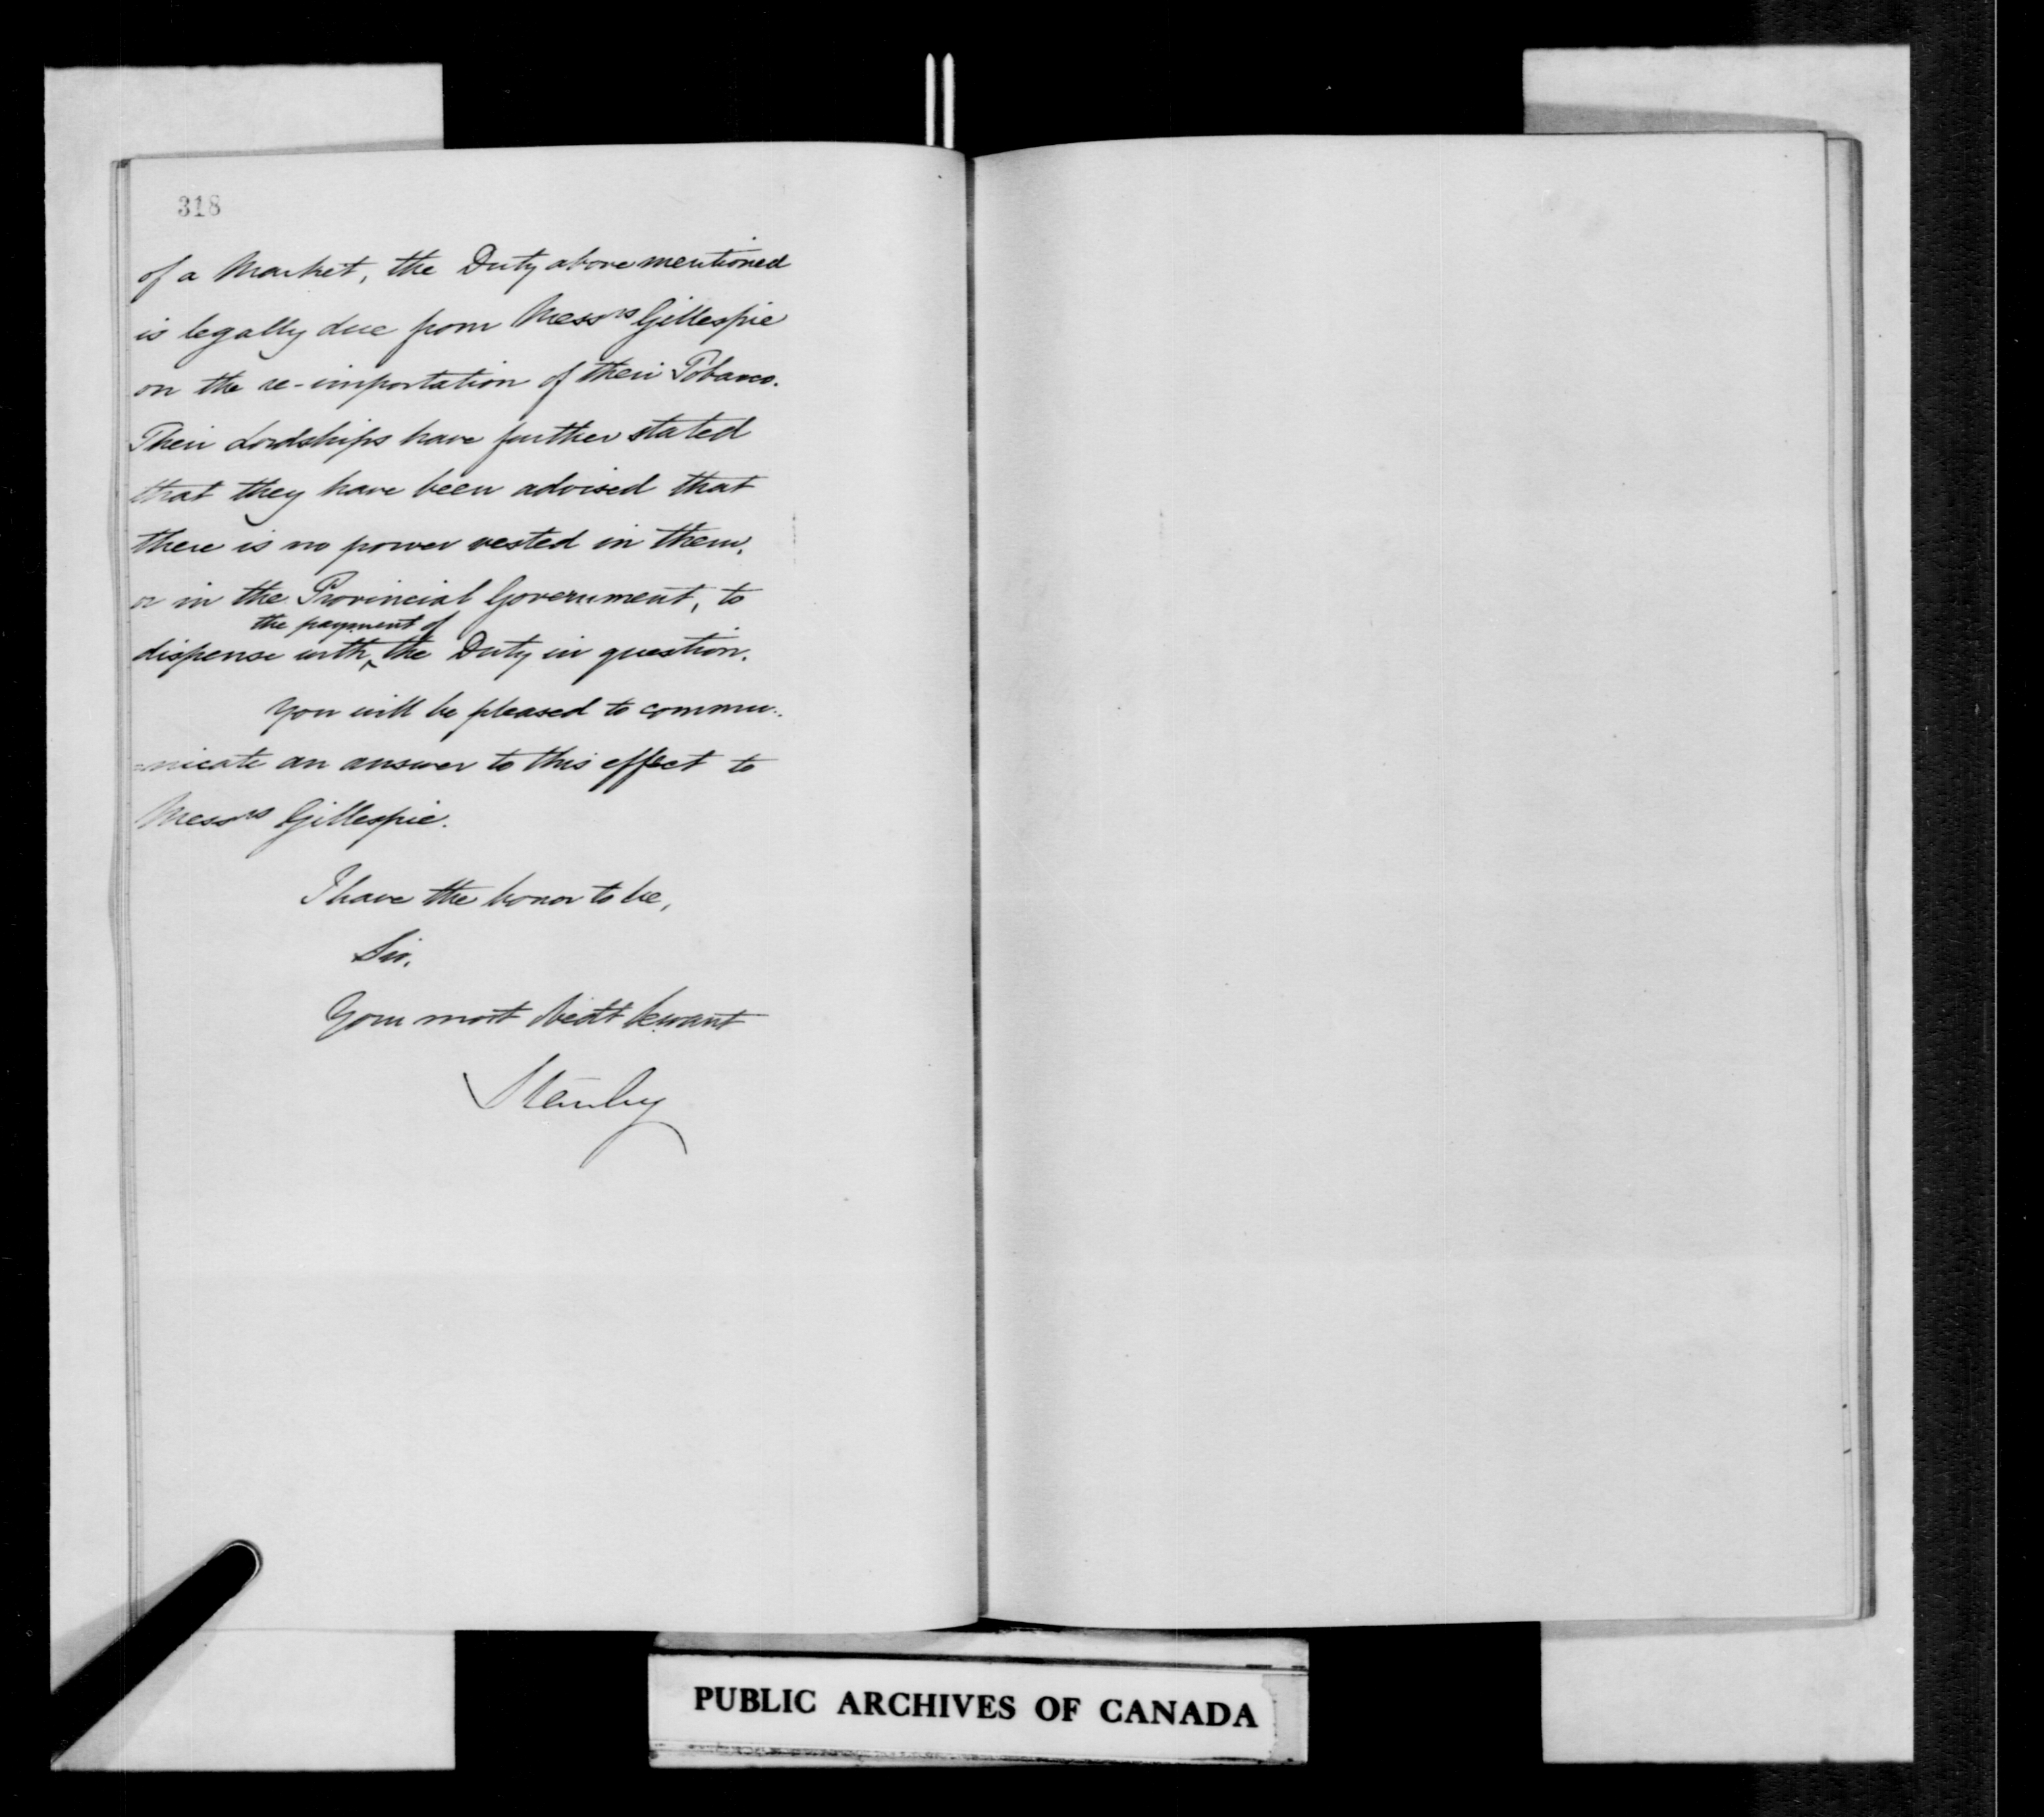 318
of a Market, the Duty above mentioned
is legally due from Messrs Gillespie
on the re-importation of their Tobacco.
Their Lordships have further stated
that they have been advised that
there is no power vested in them,
or in the Provincial Government, to
the payment of
dispense with the Duty in question.
You will be pleased to commu-
nicate an answer to this effect to
Messrs Gillespie.
I have the honor to be,
Sir,
Your most obedt servant
Stanley
PUBLIC ARCHIVES OF CANADA